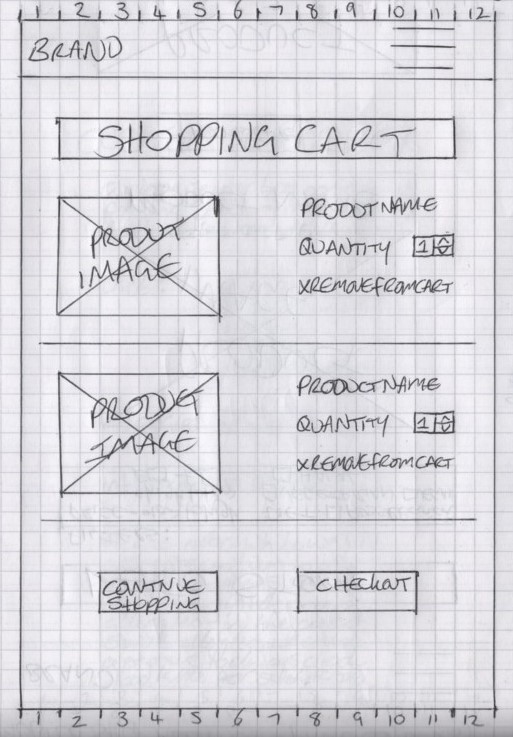 1 2 3 4 5 6 7 8 9 10 11 12
BRAND
SHOPPING CART
PRODUT IMAGE
PRODUTNAME
QUANTITY 1
XREMOVEFROMCART
PRODUCT IMAGE
PRODUCTNAME
QUANTITY 1
XREMOVEFROMCART
CONTINUE
SHOPPING
CHECKOUT
1 2 3 4 5 6 7 8 9 10 11 12